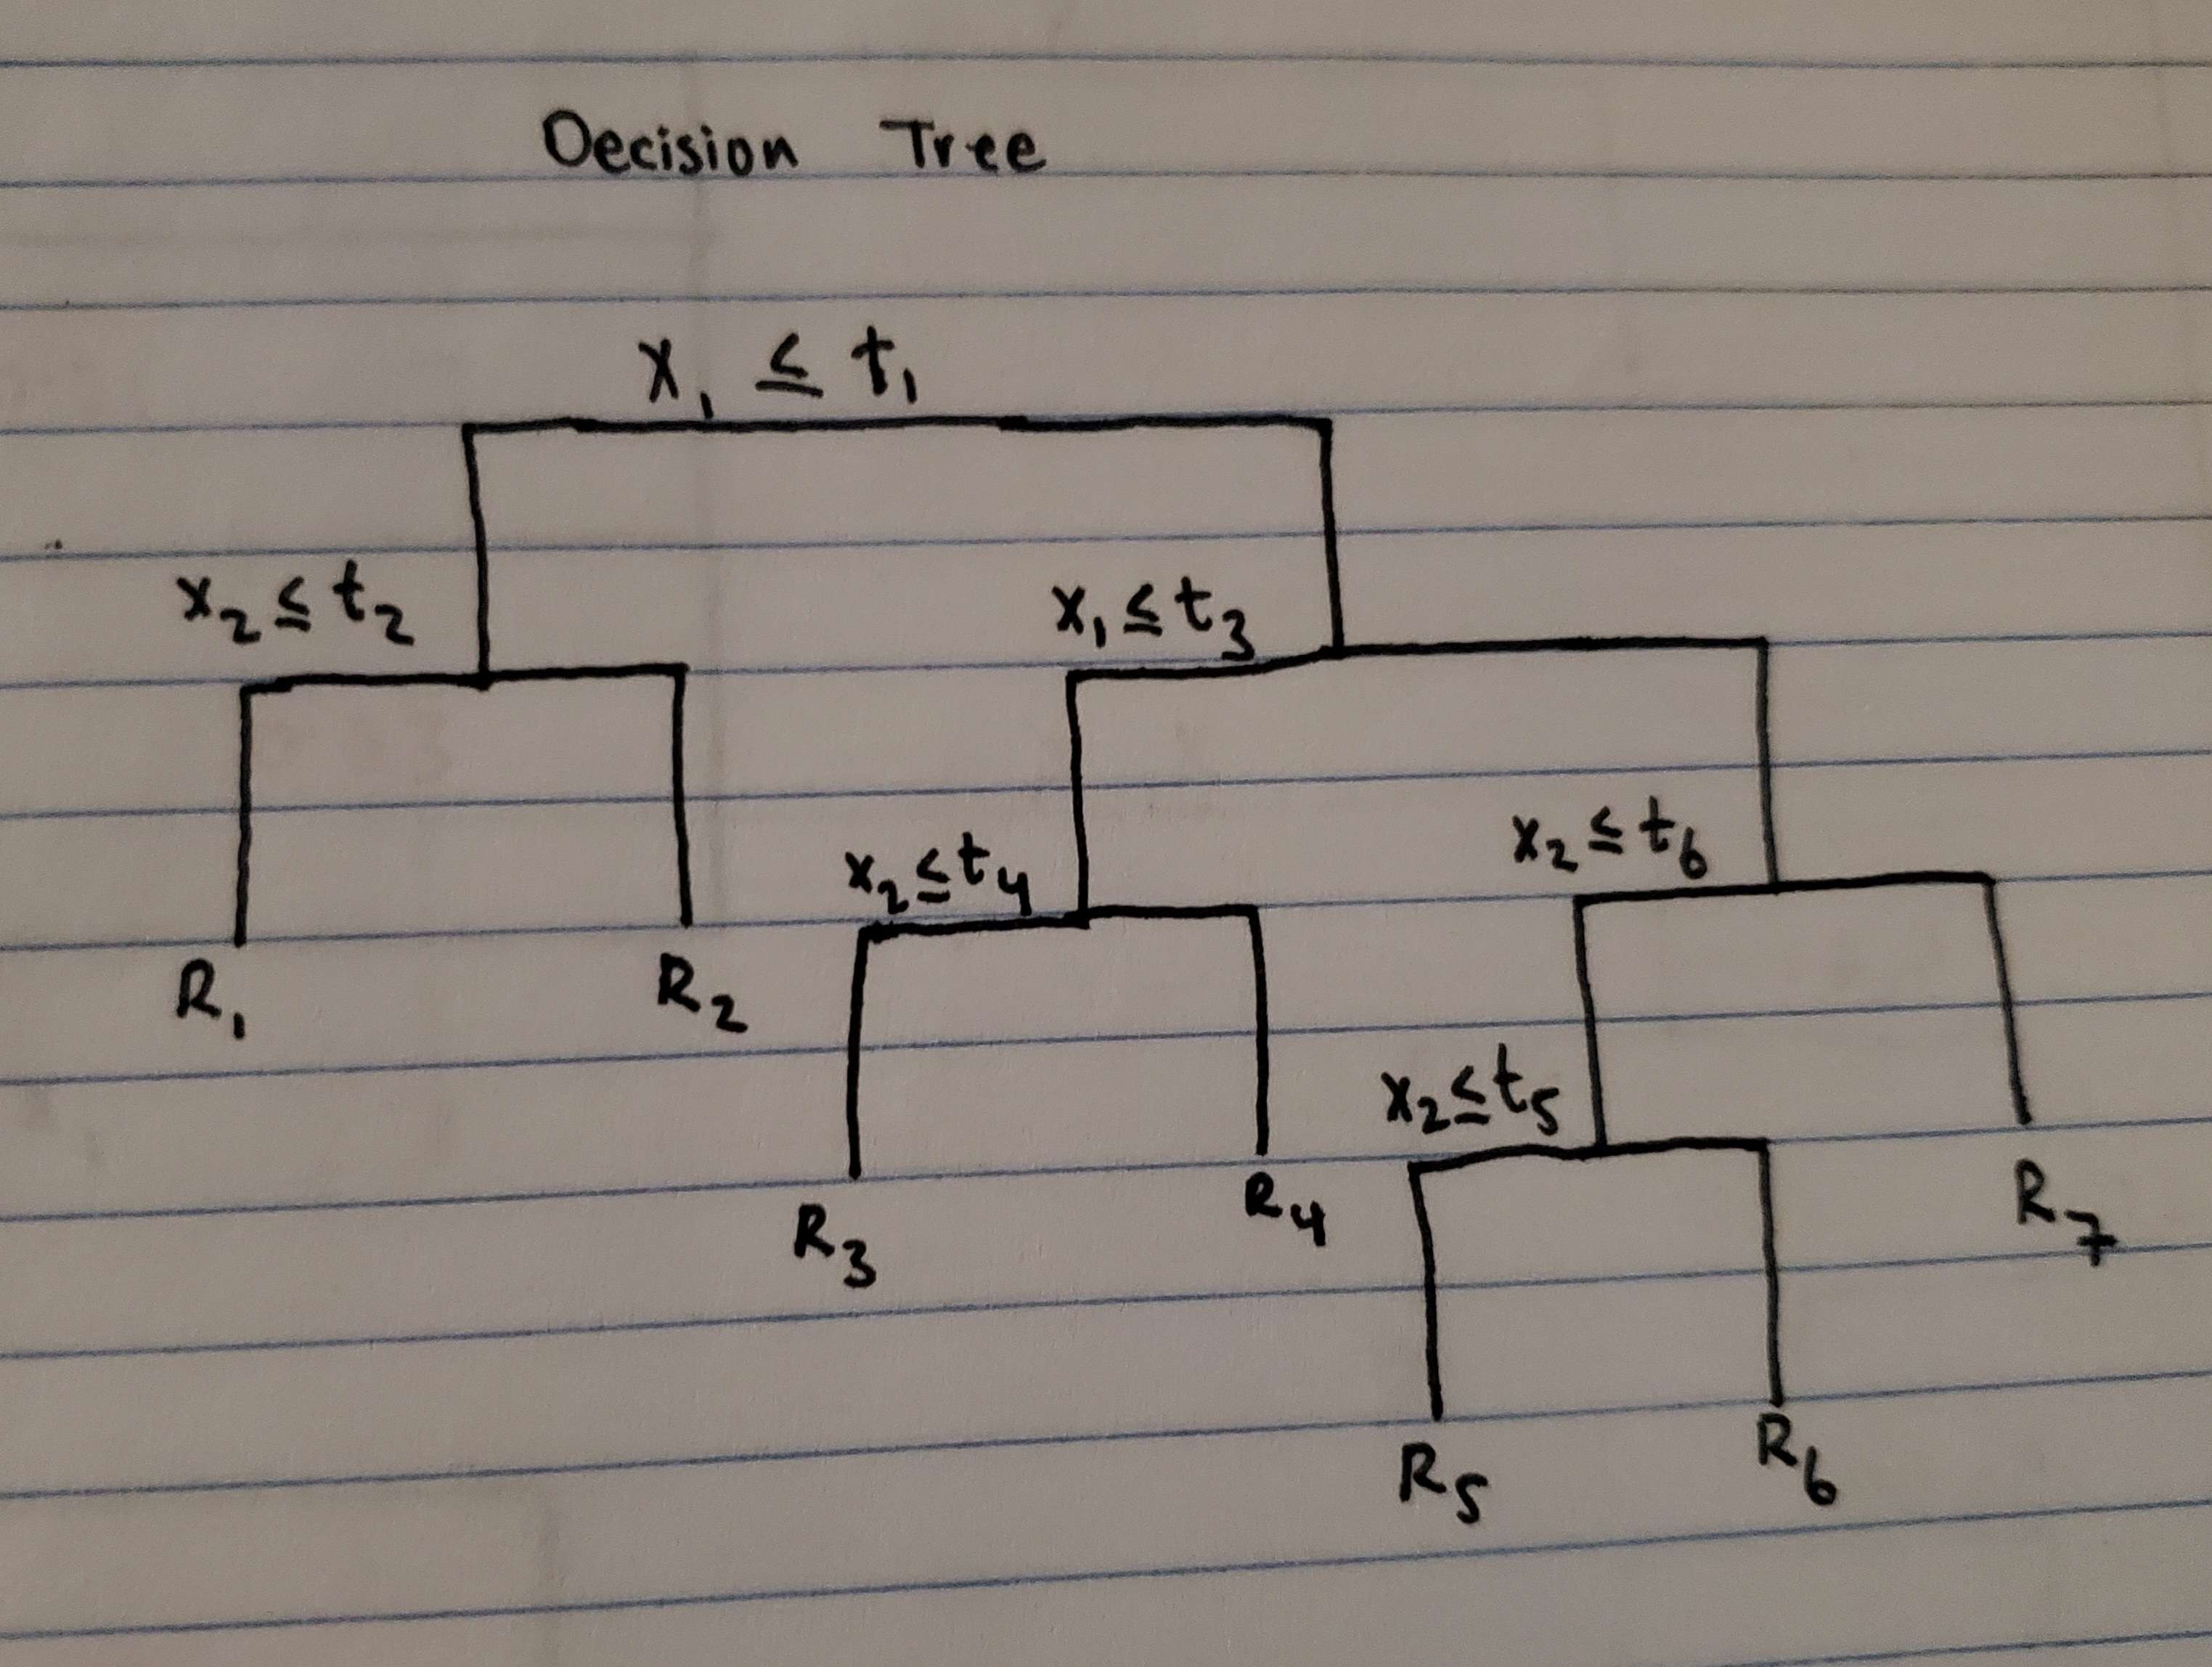 Decision Tree
x₁ ≤ t₁
x₂ ≤ t₂
x₁ ≤ t₃
x₂ ≤ t₄
x₂ ≤ t₆
R₁
R₂
x₂ ≤ t₅
R₃
R₄
R₇
R₅
R₆